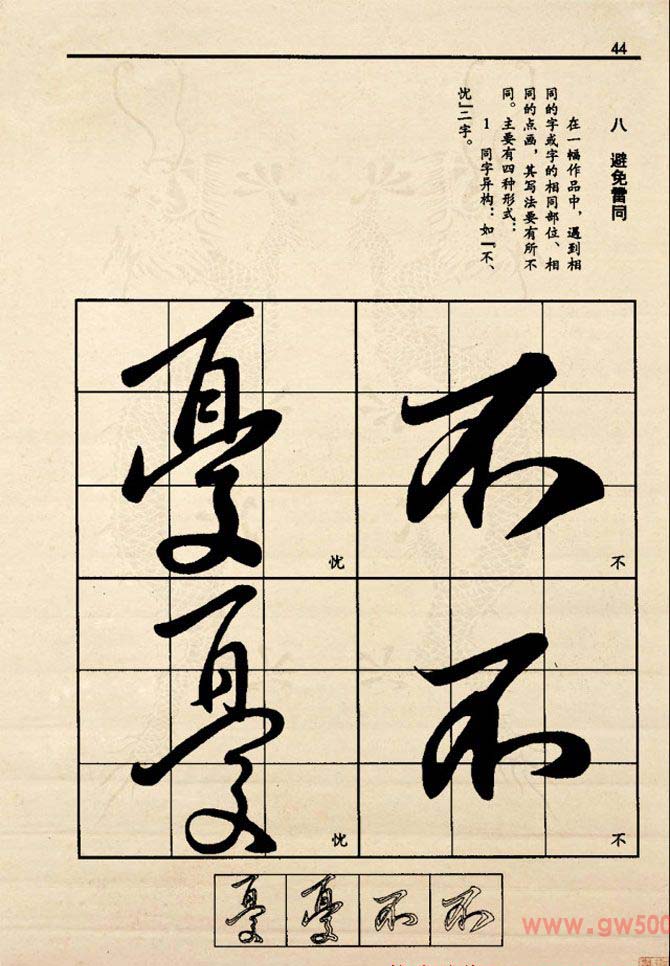 44
八 避免雷同
在一幅作品中，遇到相
同的字或字的相同部位、相
同的点画，其写法要有所不
同。主要有四种形式：
1 同字异构：如『不、
忧』二字。
不
不
不
不
憂
忧
憂
忧
憂 憂 不 不
www.gw500